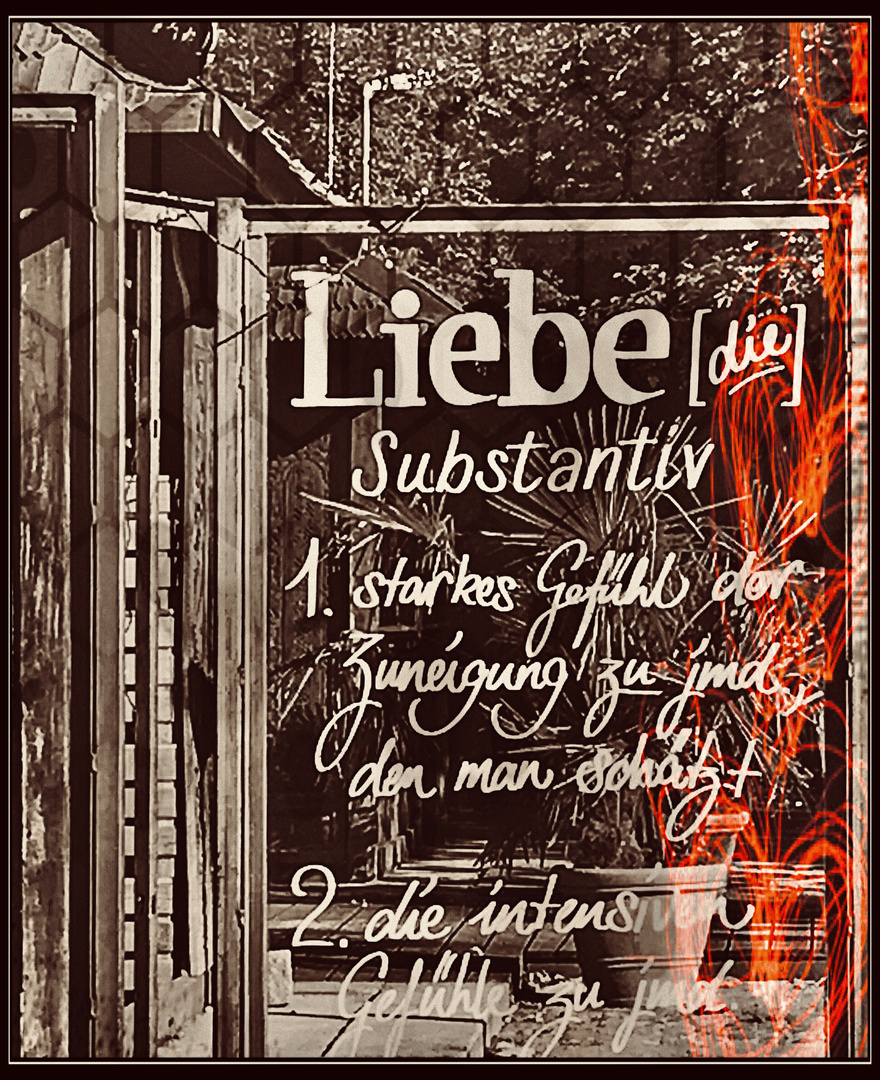 Liebe [die]
Substantiv
1. starkes Gefühl der
Zuneigung zu jmd,
den man schätzt
2. die intensiven
Gefühle zu jmd.